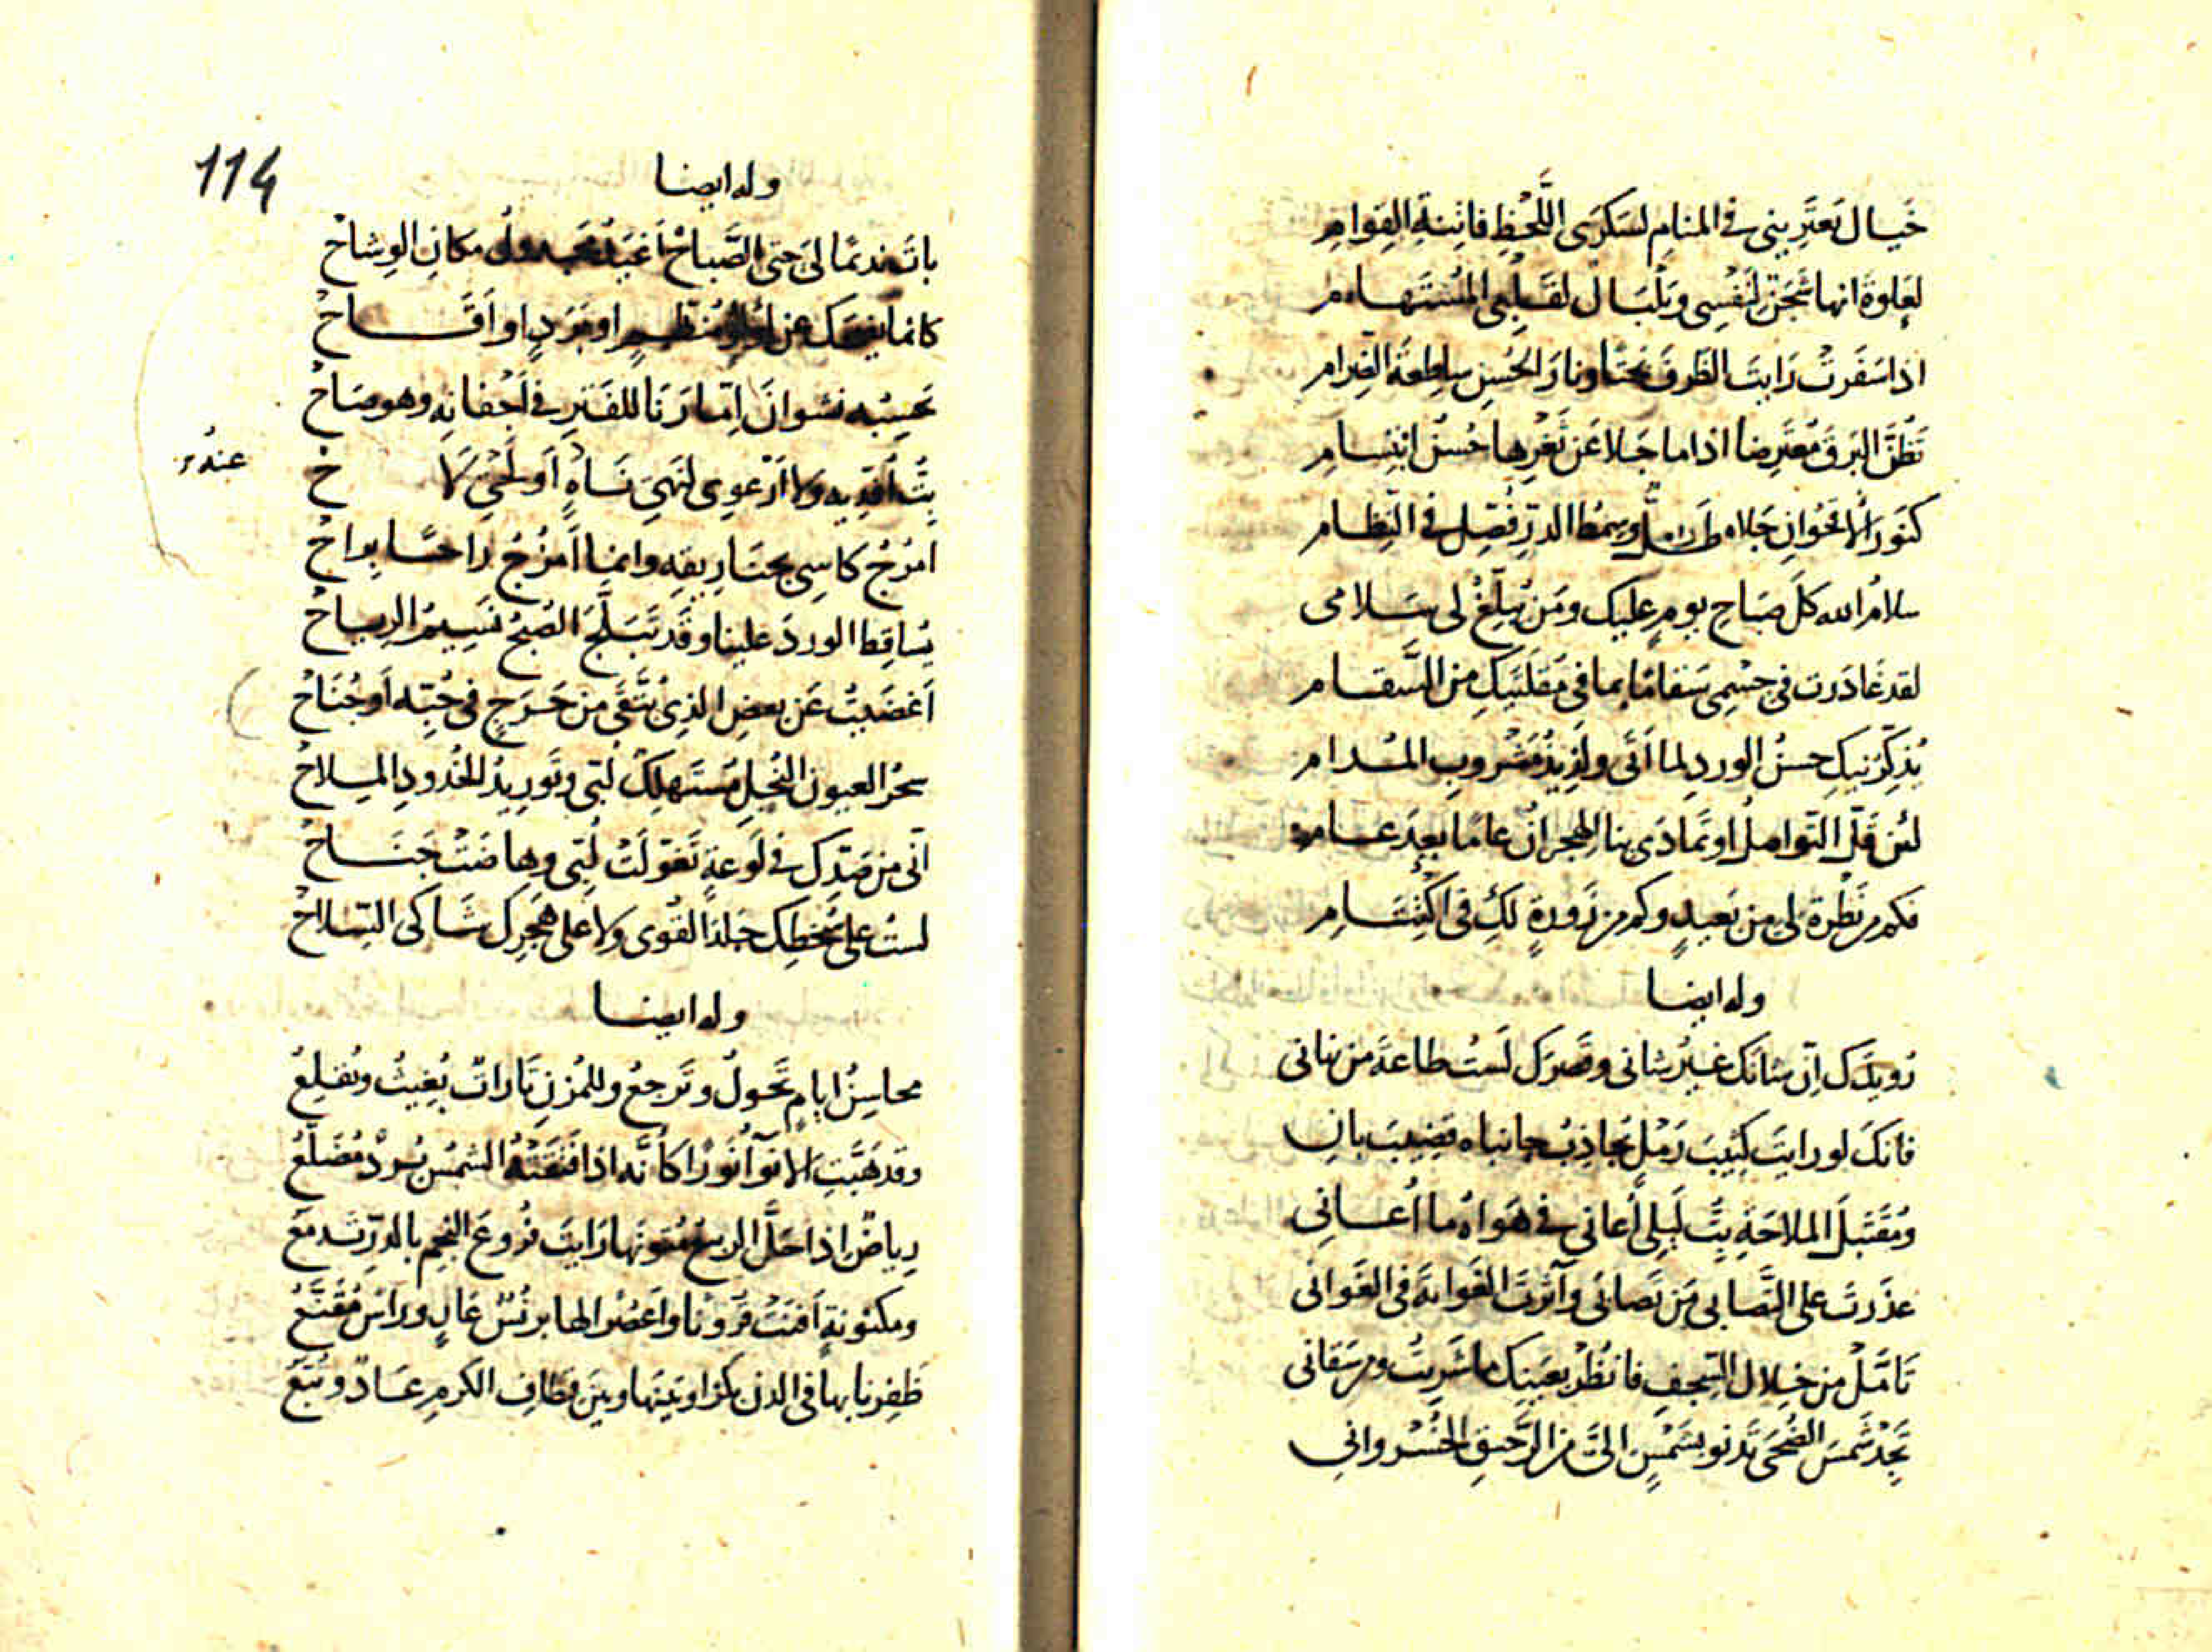 خَيال يَعتَرِيني في المنامِ لسَكرَى اللَّحْظِ فاتِنةِ القِوامِ
لعَلوةَ انها شَجَنٌ لنَفسِي وبَلْبَال لقَلبي المُستَهامِ
اذا سَفَرتْ رَايتَ الظَرفَ بَحتًا ونارَ الحُسنِ ساطِعةَ الضِرامِ
تَظُنّ البَرقَ مُعتَرِضا اذا ما جَلا عَن ثَغرِها حُسنُ ابتِسامِ
كنَورِ الاُقحُوانِ جَلاه طَلٌّ وسِمطُ الدرّ فُصِّل في النِظامِ
سلامُ الله كلَّ صَباحِ يومٍ عليك ومَن يُبلّغُ لي سَلامى
لقد غادَرتِ في جِسْمِى سَقامًا بما في مُقلَتَيكِ من السَّقامِ
يُذكّرنيكِ حسنُ الوردِ لما اَتَى ولَذيذُ مَشْروبِ المُدامِ
لئن قَلّ التَواصلُ او تَمادَى بنا الهجرانُ عامًا بعدَ عامِ
فكم من نَظرة لى من بَعيدٍ وكم من زَورةٍ لكِ في اكتِتَامِ
وله ايضا
رُويدَك اِنّ شانَك غَيرُ شانى وقَصرَك لَستُ طاعةَ من نهانى
فانك لو رايتَ كَثِيبَ رَمْلٍ تجاذِبُ جانباه قضِيبَ بانِ
ومُقتَبلَ الملاحَةِ بِتُّ لَيلِى اُعانِى في هَواهُ ما اُعانِى
عذَرتَ على التَّصابى مَن تَصابَى وآثرتَ الغَوايةَ فى الغَوانى
تَامّلْ من خِلالِ السِجفِ فانظُرْ بعَينِك ما شَرِبتُ ومن سَقانى
تَجِدْ شَمسَ الضُحَى تَدنو بشَمْسٍ الىّ من الرَّحيقِ الخُسْروانى
114
وله ايضا
باتَ نديمًا لىَ حتى الصَّباحْ اَغيَدُ مَجدولُ مكانِ الوِشاحْ
كانما يضحك عن لؤلؤٍ منظمٍ او بَرَدٍ او اَقاحْ
تَحسِبُه نشوانَ اِمّا رَنا للفَترِ في اَجْفانِه وهو صَاحْ
بِتُّ اُفدّيه ولا اَرْعوِى لنَهىِ نَاهٍ اَو لَحْىِ لَاحْ
عنهُ
اَمزُجُ كاسِى بجَنا رِيقِه وانما اَمزُجُ راحًا براحْ
يُساقِط الوردَ علينا وقَد تَبَلَّجَ الصُبحُ نَسيمُ الرِياحْ
اَغضَيتُ عَن بعضِ الذِى يُتَّقَى من حَرَجٍ في حُبّه اَو جُنَاحْ
سحرُ العيونِ النُجلِ مُستَهلِكٌ لُبّى وتَورِيدُ الخُدودِ المِلاحْ
انّى من صَدِّك في لَوعةٍ تَغوّلَتْ لُبّى وهاضَتْ جَنَاحْ
لستُ على سُخطِك جَلدَ القُوى ولا على هَجرِك شاكى السِلاحْ
وله ايضا
محاسِنُ ايامٍ تَحولُ وتَرجعُ وللمُزنِ تَاراتٌ يُغِيثُ ويُقلِعُ
وقد هَبّتِ الانوآ نَورًا كاَنّه اذا فَتَقَتْهُ الشمسُ بُردٌ مُضَلّعُ
رِياضٌ اذا حَلَّ الربيعُ مُتونَها رَايتَ فُروعَ النجمِ بالدرّ تَدمَعُ
ومكنونةٍ اَفنَت قُرُونًا واَعصُرًا لها برنُسٌ عَالٍ وراسٌ مُقَنّعُ
ظَفِرنا بها في الدنّ بكرًا وبَينَها وبينَ قطافِ الكرمِ عَادٌ وتُبّعُ